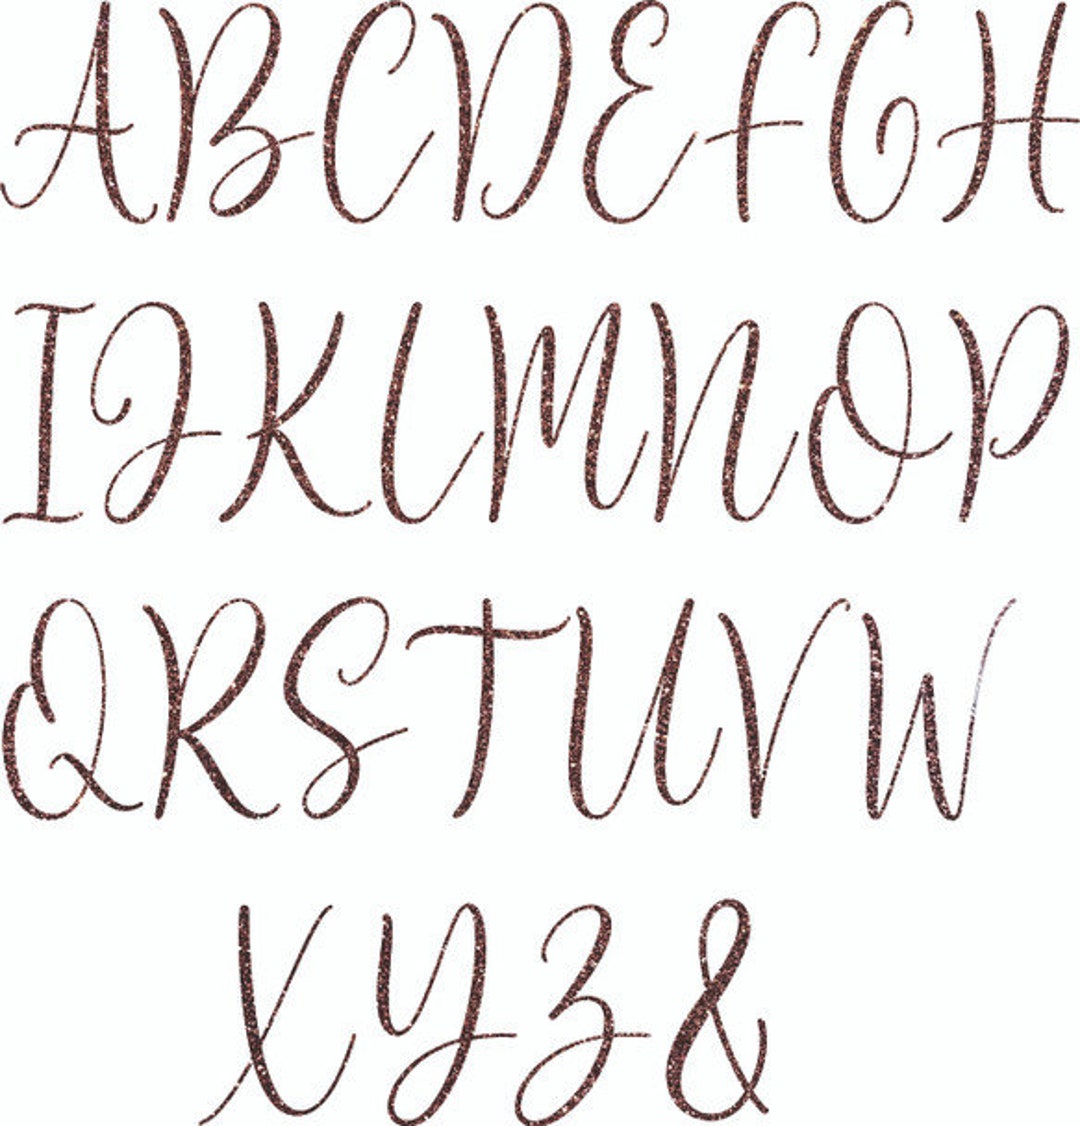 ABCDEFGH
IJKLMNOP
QRSTUVW
XYZ&